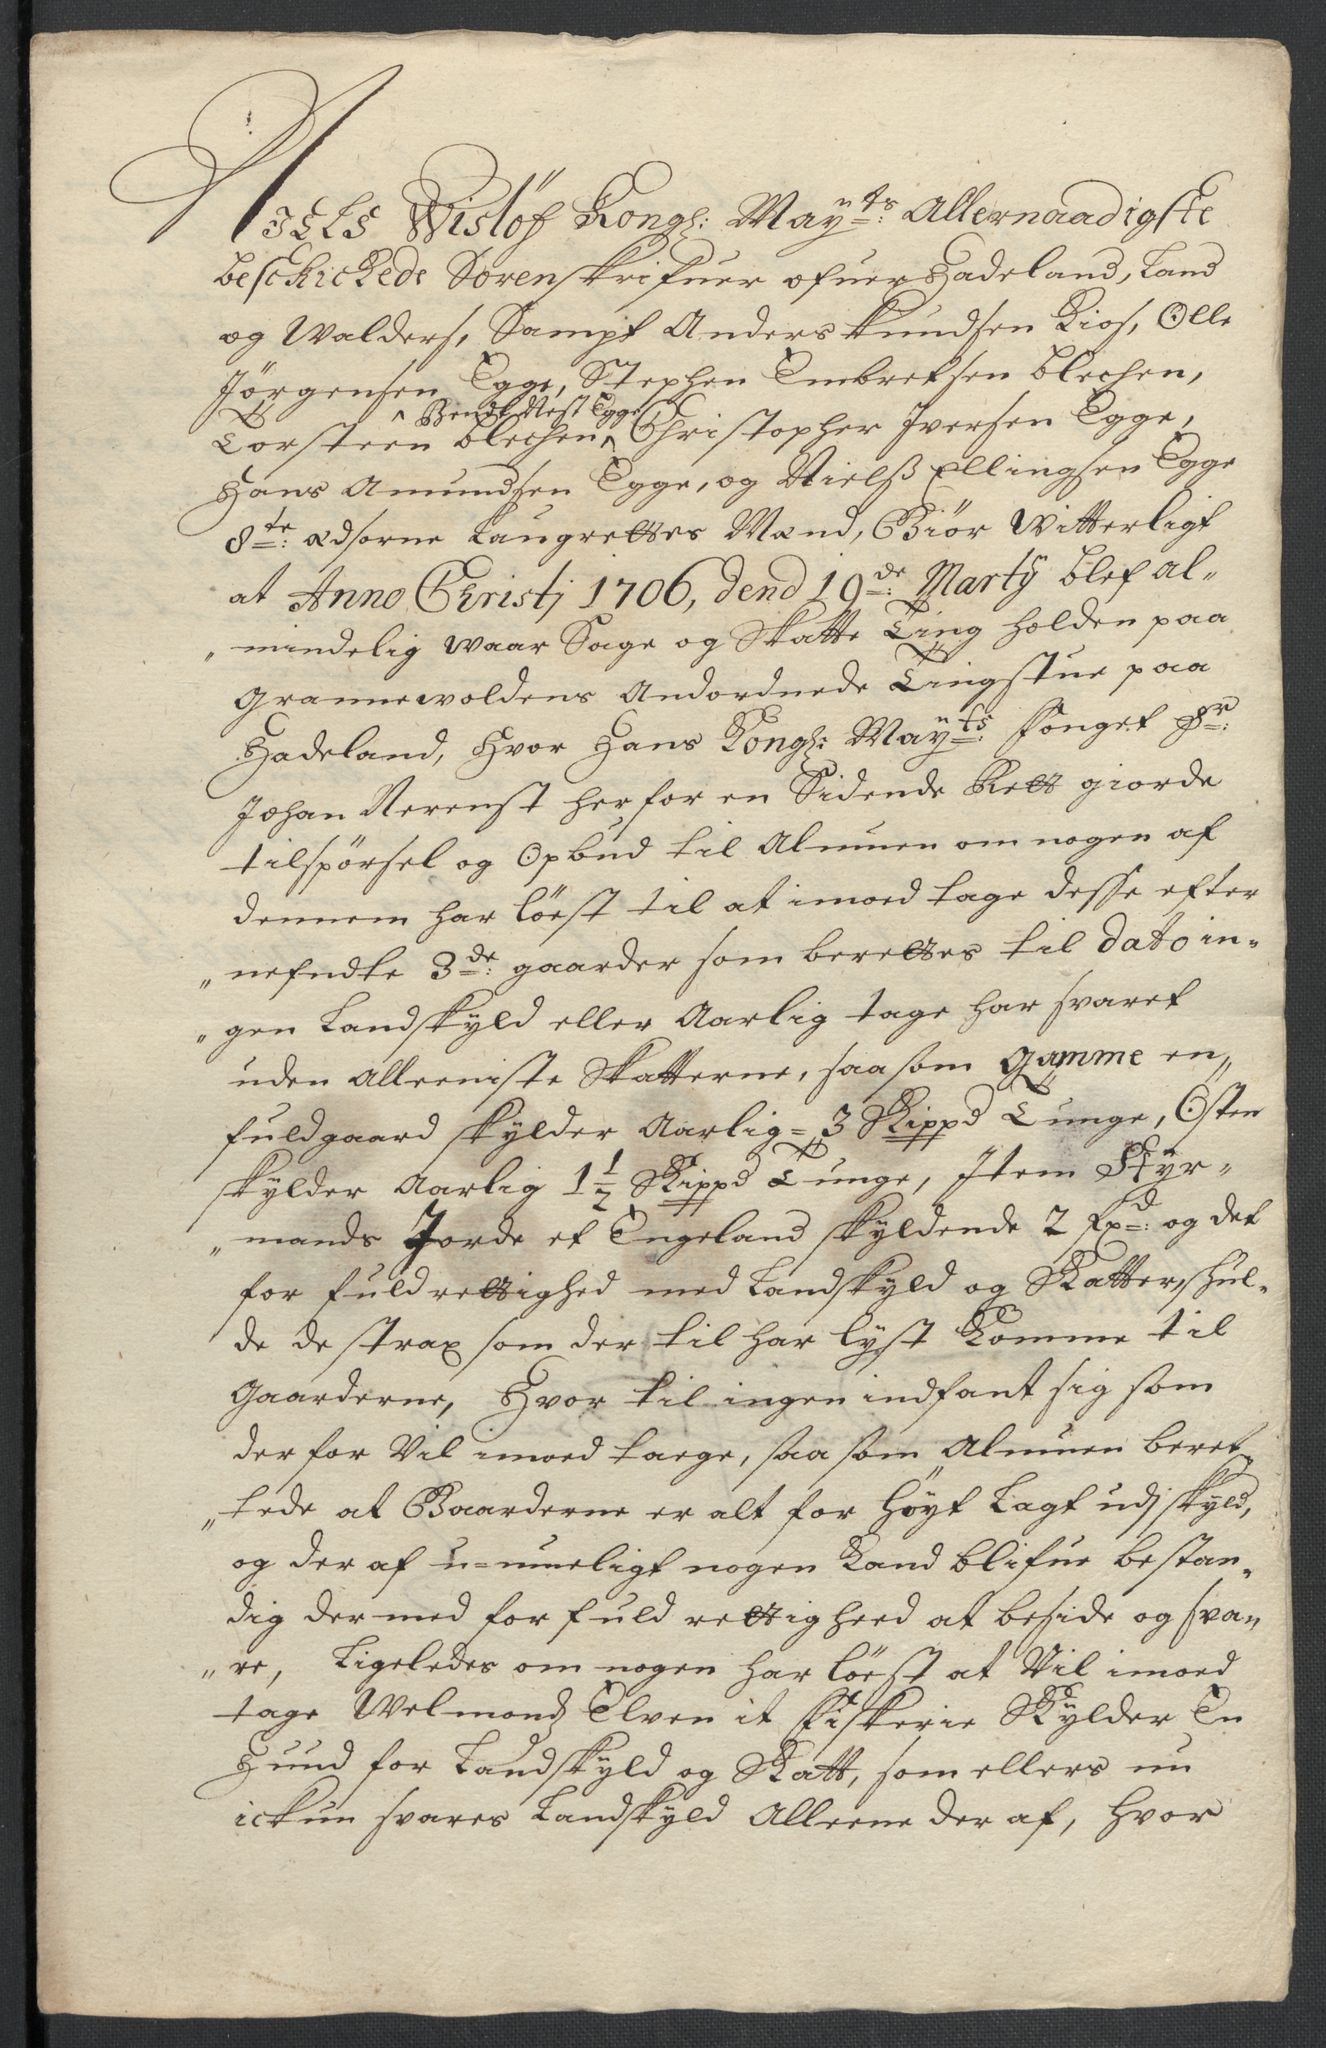 Niels Wislöf Kongl: May:ts Allernaadigste
beschickede Sorenskrifuer ofuer Hadeland, Land
og Walders, Sampt Anders Knudsen Kios, Olle
Jörgensen Egge, Stephen Embretsen blechen,
Torsteen blechen, ^ Bendt Nest Egge ^ Christopher Iversen Egge,
Hans Amundsen Egge, og Nielß Ellingsen Egge
8te: ædsorne Laugrettes Mænd, Giör Witterligt
at Anno Christj 1706, dend 19de: Martÿ blef al„
„mindelig waar Sage og Skatte Ting holden paa
Grannewoldens Andordnede Tingstue paa
Hadeland, Hvor Hans Kongl: May:ts fouget Sr:
Johan Nerenst her for en Sidende Rett giorde
tilspörsel og Opbud til Almuen om nogen af
dennem har löest til at imoed tage desse efter
„nefndte 3de: gaarder som berettes til dato in„
„gen Landskyld eller Aarlig tage har svaret
uden alleeniste Skatterne, saa som Gamme en„
fuldgaard skylder Aarlig= 3 Skippd Tunge, Östen
skylder Aarlig 1½ Skippd Tunge, Item Styr„
„mands Jorde et Engeland skyldende 2 Lpd: og det
for fuld rettighed med Landskyld og Skatter, skul„
de de strax som der til har lyst Komme til
Gaarderne, Hvor til ingen indfant sig som
der for Vil imoed taege, saa som Almuen beret„
„tede at Gaarderne er alt for höyt Lagt udj skyld,
og der af u=mueligt nogen Kand blifue bestan„
dig der med for fuld rettigheed at beside og sva„
„re, Ligeledes om nogen har löest at Vil imoed
tage Welmond Elven it fiskerie Skylder En
Hund for Landskyld og Skatt, som ellers nu
ickun svares Landskyld Alleene der af, hvor